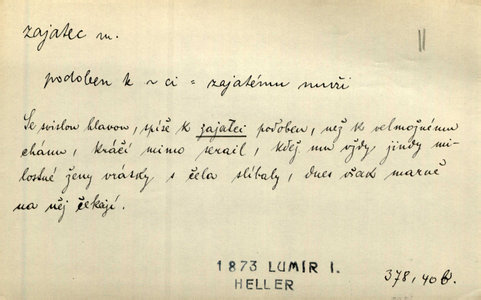 zajatec m.
||
podoben k ~ ci = zajatému muži
Se svislou hlavou, spíše k zajatci podoben, než k velmožnému
chánu, kráčí mimo serail, kdež mu vždy jindy mi-
lostné ženy vrásky s čela slíbaly, dnes však marně
na něj čekají.
1873 LUMIR I.
HELLER
378, 40 b.